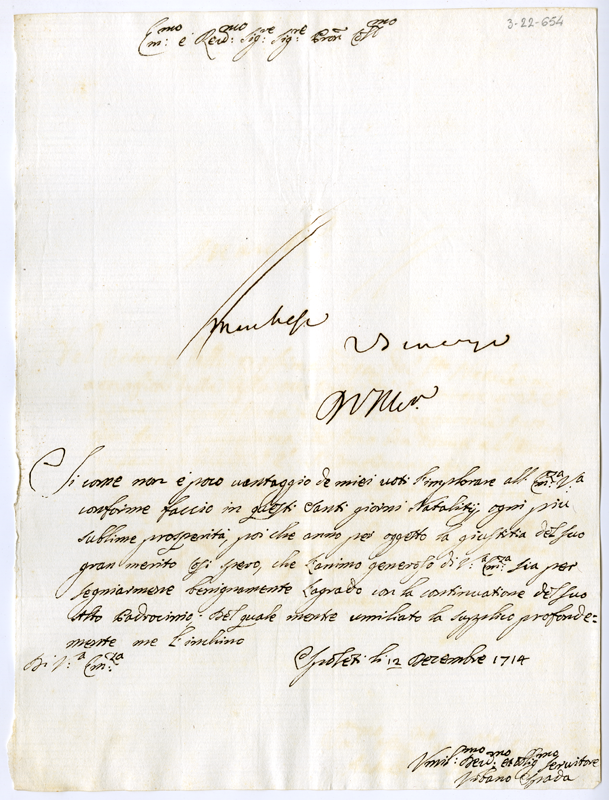 3-22-654
Em:mo e Rev:mo Sig:re Sig:re Pron Col:mo
Si come non è poco vantaggio de miei voti l'implorare all' Em:za V:a
conforme faccio in questi Santi giorni Natalitij, ogni più
sublime prosperità, poi che anno per oggetto la giustitia del suo
gran merito Così spero, che l'animo generoso di V:a Em:za sia per
segniarmene benignamente l'agrado con la continuatione del suo
Alto Padrocinio. Del quale mente umiliato la supplico profonde=
mente me l'inchino
Di V:a Em:za
Spoleti li 12 Decembre 1714
Vmil:mo Dev:mo et Oblig:mo Servitore
Vrbano Spada